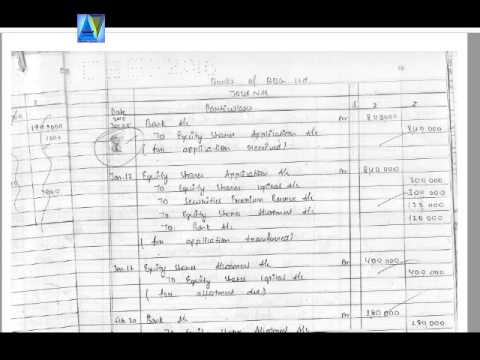 AV
Books of BDG Ltd.
JOURNAL
Date Particulars
Bank A/c Dr 840000
To Equity Shares Application A/c 840000
( for application received )
Jan.12 Equity Shares Application A/c Dr 840000
To Equity Shares Capital A/c 300000
To Securities Premium Reserve A/c 300000
To Equity Shares Allotment A/c
To Bank A/c 120000
( for application transferred )
Jan.17 Equity Shares Allotment A/c Dr 400000
To Equity Shares Capital A/c 400000
( for allotment due )
Feb 20 Bank A/c Dr 280000
To Equity Shares Allotment A/c 280000